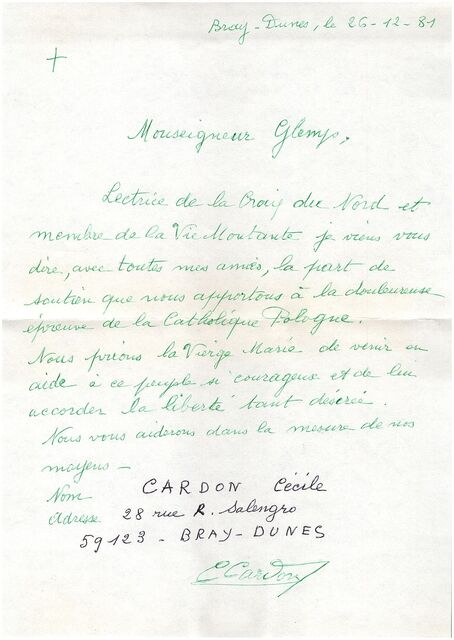 Bray-Dunes, le 26-12-81
Monseigneur Glemp,
Lectrice de la Croix du Nord et
membre de la Vie Montante je viens vous
dire, avec toutes mes amies, la part de
soutien que nous apportons à la douloureuse
épreuve de la Catholique Pologne.
Nous prions la Vierge Marie de venir en
aide à ce peuple si courageux et de lui
accorder la liberté tant désirée.
Nous vous aiderons dans la mesure de nos
moyens -
Nom CARDON Cécile
Adresse 28 rue R. Salengro
59123 - BRAY-DUNES
C Cardon